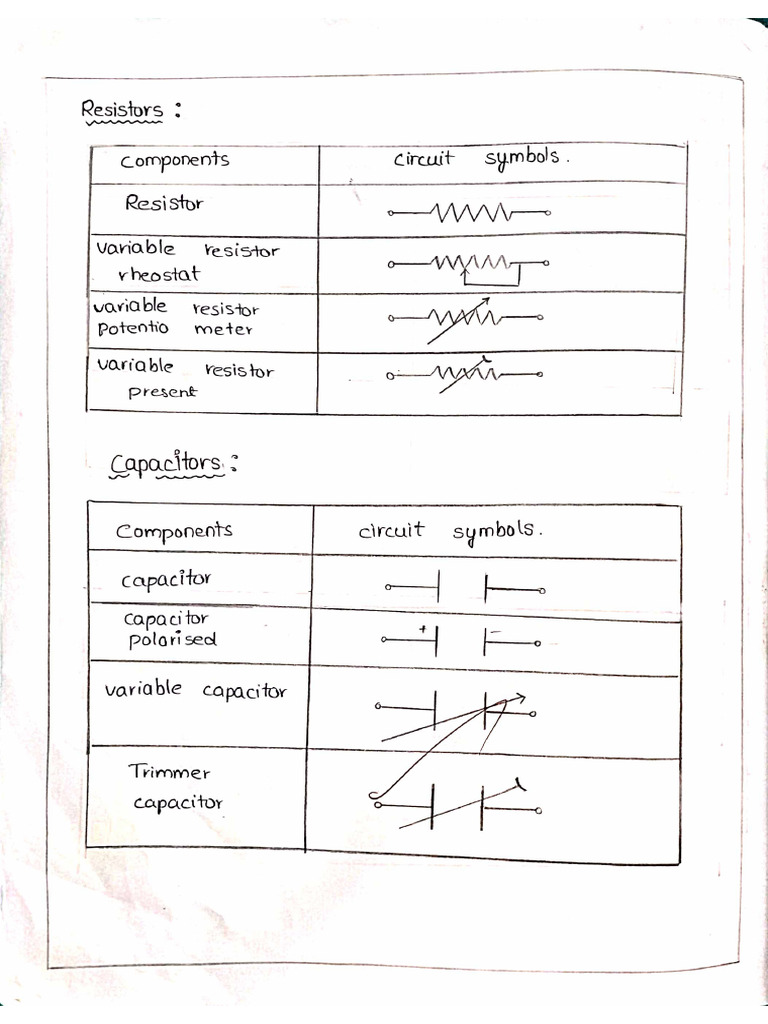 Resistors :
Components
circuit symbols.
Resistor
variable resistor
rheostat
variable resistor
potentio meter
variable resistor
present
Capacitors :
Components
circuit symbols.
capacitor
capacitor
polarised
+ -
variable capacitor
Trimmer
capacitor